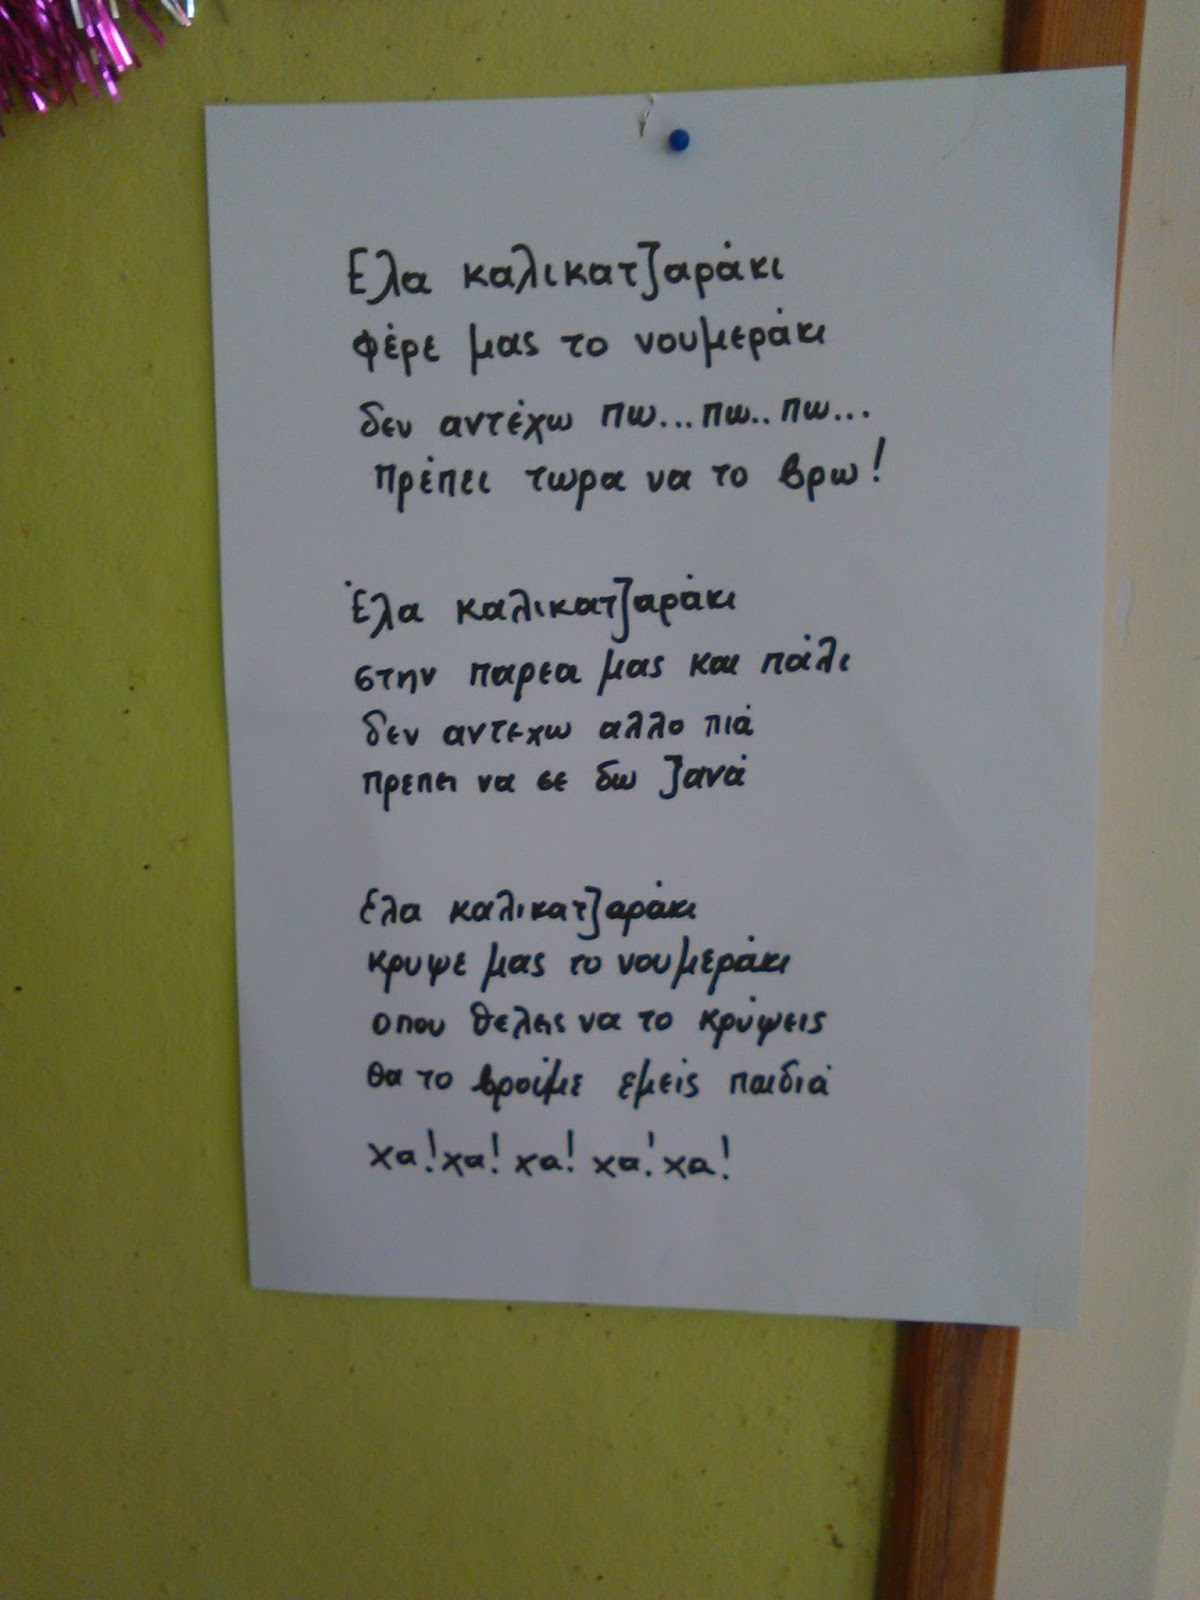 Ελα καλικατζαράκι
φέρε μας το νουμεράκι
δεν αντέχω πω...πω..πω...
πρέπει τωρα να το βρω!
Έλα καλικατζαράκι
στην παρεα μας και πάλι
δεν αντεχω αλλο πιά
πρεπει να σε δω ξανά
ελα καλικατζαράκι
κρυψε μας το νουμεράκι
οπου θελεις να το κρύψεις
θα το βρούμε εμείς παιδιά
χα!χα! χα! χα!χα!